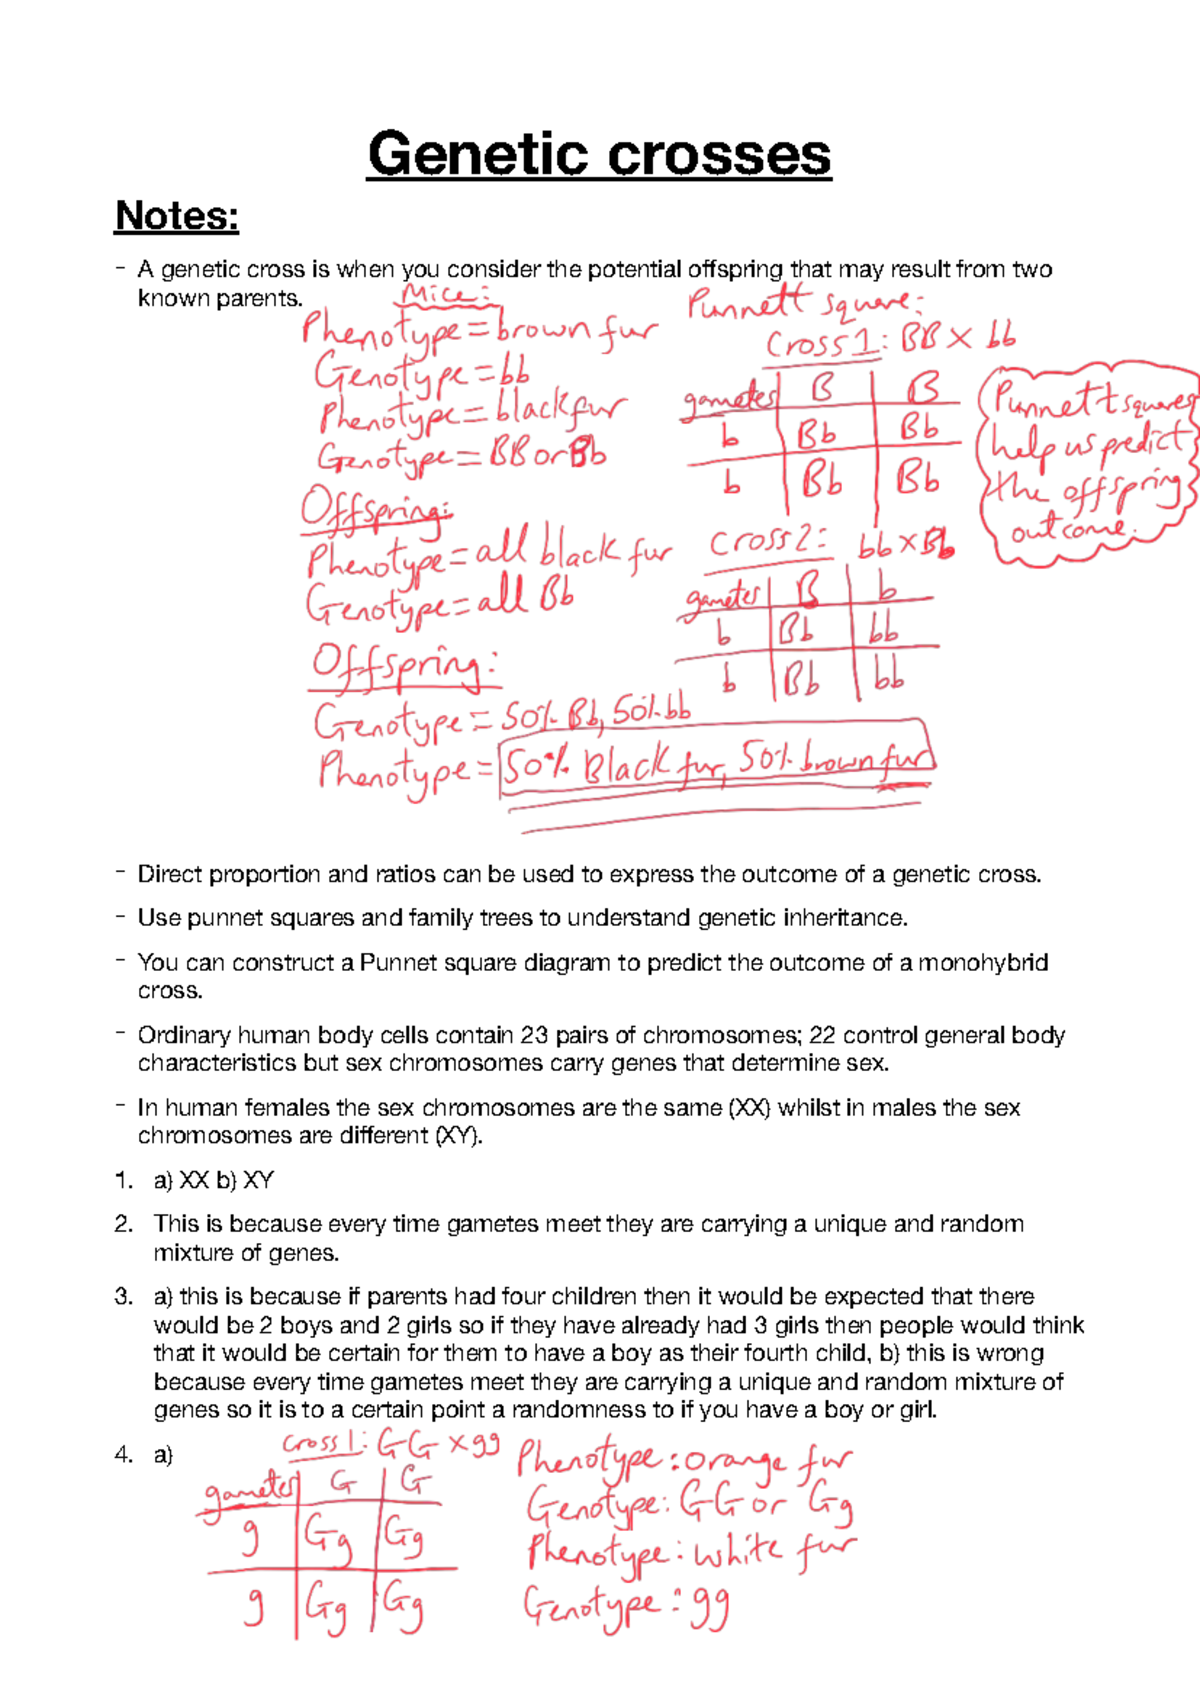 Genetic crosses
Notes:
- A genetic cross is when you consider the potential offspring that may result from two
known parents.
Mice:
Phenotype = brown fur
Genotype = bb
Phenotype = black fur
Genotype = BB or Bb
Offspring:
Phenotype = all black fur
Genotype = all Bb
Offspring:
Genotype = 50% Bb, 50% bb
Phenotype = 50% Black fur, 50% brown fur
Punnett square:
Cross 1: BB X bb
gametes B B
b Bb Bb
b Bb Bb
Punnett squares
help us predict
the offspring
outcome.
Cross 2: bb X Bb
gametes B b
b Bb bb
b Bb bb
- Direct proportion and ratios can be used to express the outcome of a genetic cross.
- Use punnet squares and family trees to understand genetic inheritance.
- You can construct a Punnet square diagram to predict the outcome of a monohybrid
cross.
- Ordinary human body cells contain 23 pairs of chromosomes; 22 control general body
characteristics but sex chromosomes carry genes that determine sex.
- In human females the sex chromosomes are the same (XX) whilst in males the sex
chromosomes are different (XY).
1. a) XX b) XY
2. This is because every time gametes meet they are carrying a unique and random
mixture of genes.
3. a) this is because if parents had four children then it would be expected that there
would be 2 boys and 2 girls so if they have already had 3 girls then people would think
that it would be certain for them to have a boy as their fourth child, b) this is wrong
because every time gametes meet they are carrying a unique and random mixture of
genes so it is to a certain point a randomness to if you have a boy or girl.
4. a)
Cross 1: GG X gg
gametes G G
g Gg Gg
g Gg Gg
Phenotype: orange fur
Genotype: GG or Gg
Phenotype: white fur
Genotype: gg